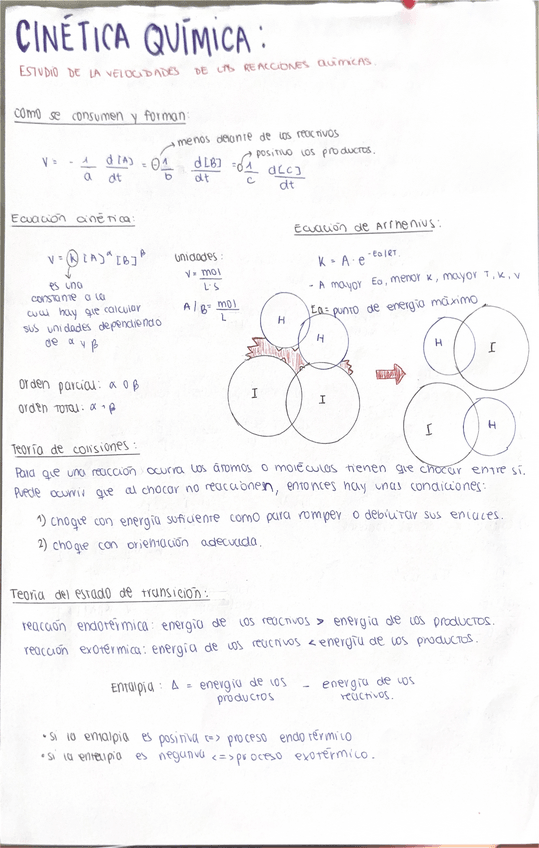 CINÉTICA QUÍMICA:
ESTUDIO DE LA VELOCIDADES DE LAS REACCIONES QUÍMICAS.
Cómo se consumen y forman:
menos delante de los reactivos
positivo los productos.
V = - 1/a d[A]/dt = - 1/b d[B]/dt = 1/c d[C]/dt
Ecuación cinética:
V = K [A]^α [B]^β
es una
constante a la
cual hay que calcular
sus unidades dependiendo
de α y β
unidades:
V = mol/L·S
A/B = mol/L
Orden parcial: α o β
Orden total: α + β
Ecuación de Arrhenius:
K = A · e^-Ea/RT.
- A mayor Ea, menor K, mayor T, K, V
Ea = punto de energía máximo
H
H
I
I
H
I
I
H
Teoría de colisiones:
Para que una reacción ocurra los átomos o moléculas tienen que chocar entre sí.
Puede ocurrir que al chocar no reaccionen, entonces hay unas condiciones:
1) choque con energía suficiente como para romper o debilitar sus enlaces.
2) choque con orientación adecuada.
Teoría del estado de transición:
reacción endotérmica: energía de los reactivos > energía de los productos.
reacción exotérmica: energía de los reactivos < energía de los productos.
Entalpia: Δ = energía de los productos - energía de los reactivos.
• Si la entalpia es positiva <=> proceso endotérmico
• Si la entalpia es negativa <=> proceso exotérmico.